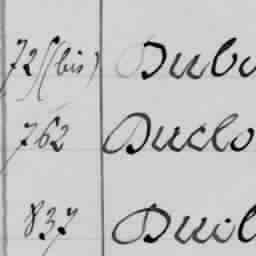 72 (bis) Dubo
762 Duclo
837 Duil